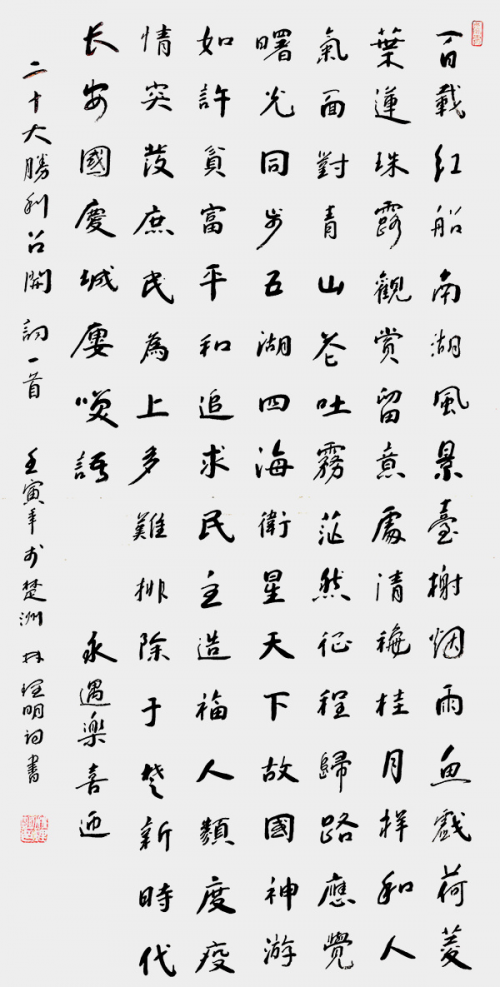 百載紅船南湖風景臺榭烟雨魚戲荷菱
葉蓮珠露觀賞留意處清桂月祥和人
氣面對青山花吐霧茫然征程歸路應覺
曙光同步五湖四海衛星天下故國神游
如許貧富平和追求民主造福人類度疫
情突發庶民為上多難排除于新時代
长安國慶城廔喚語 永遇樂喜迎
二十大勝利召開詞一首 壬寅年於楚洲林理明詞書